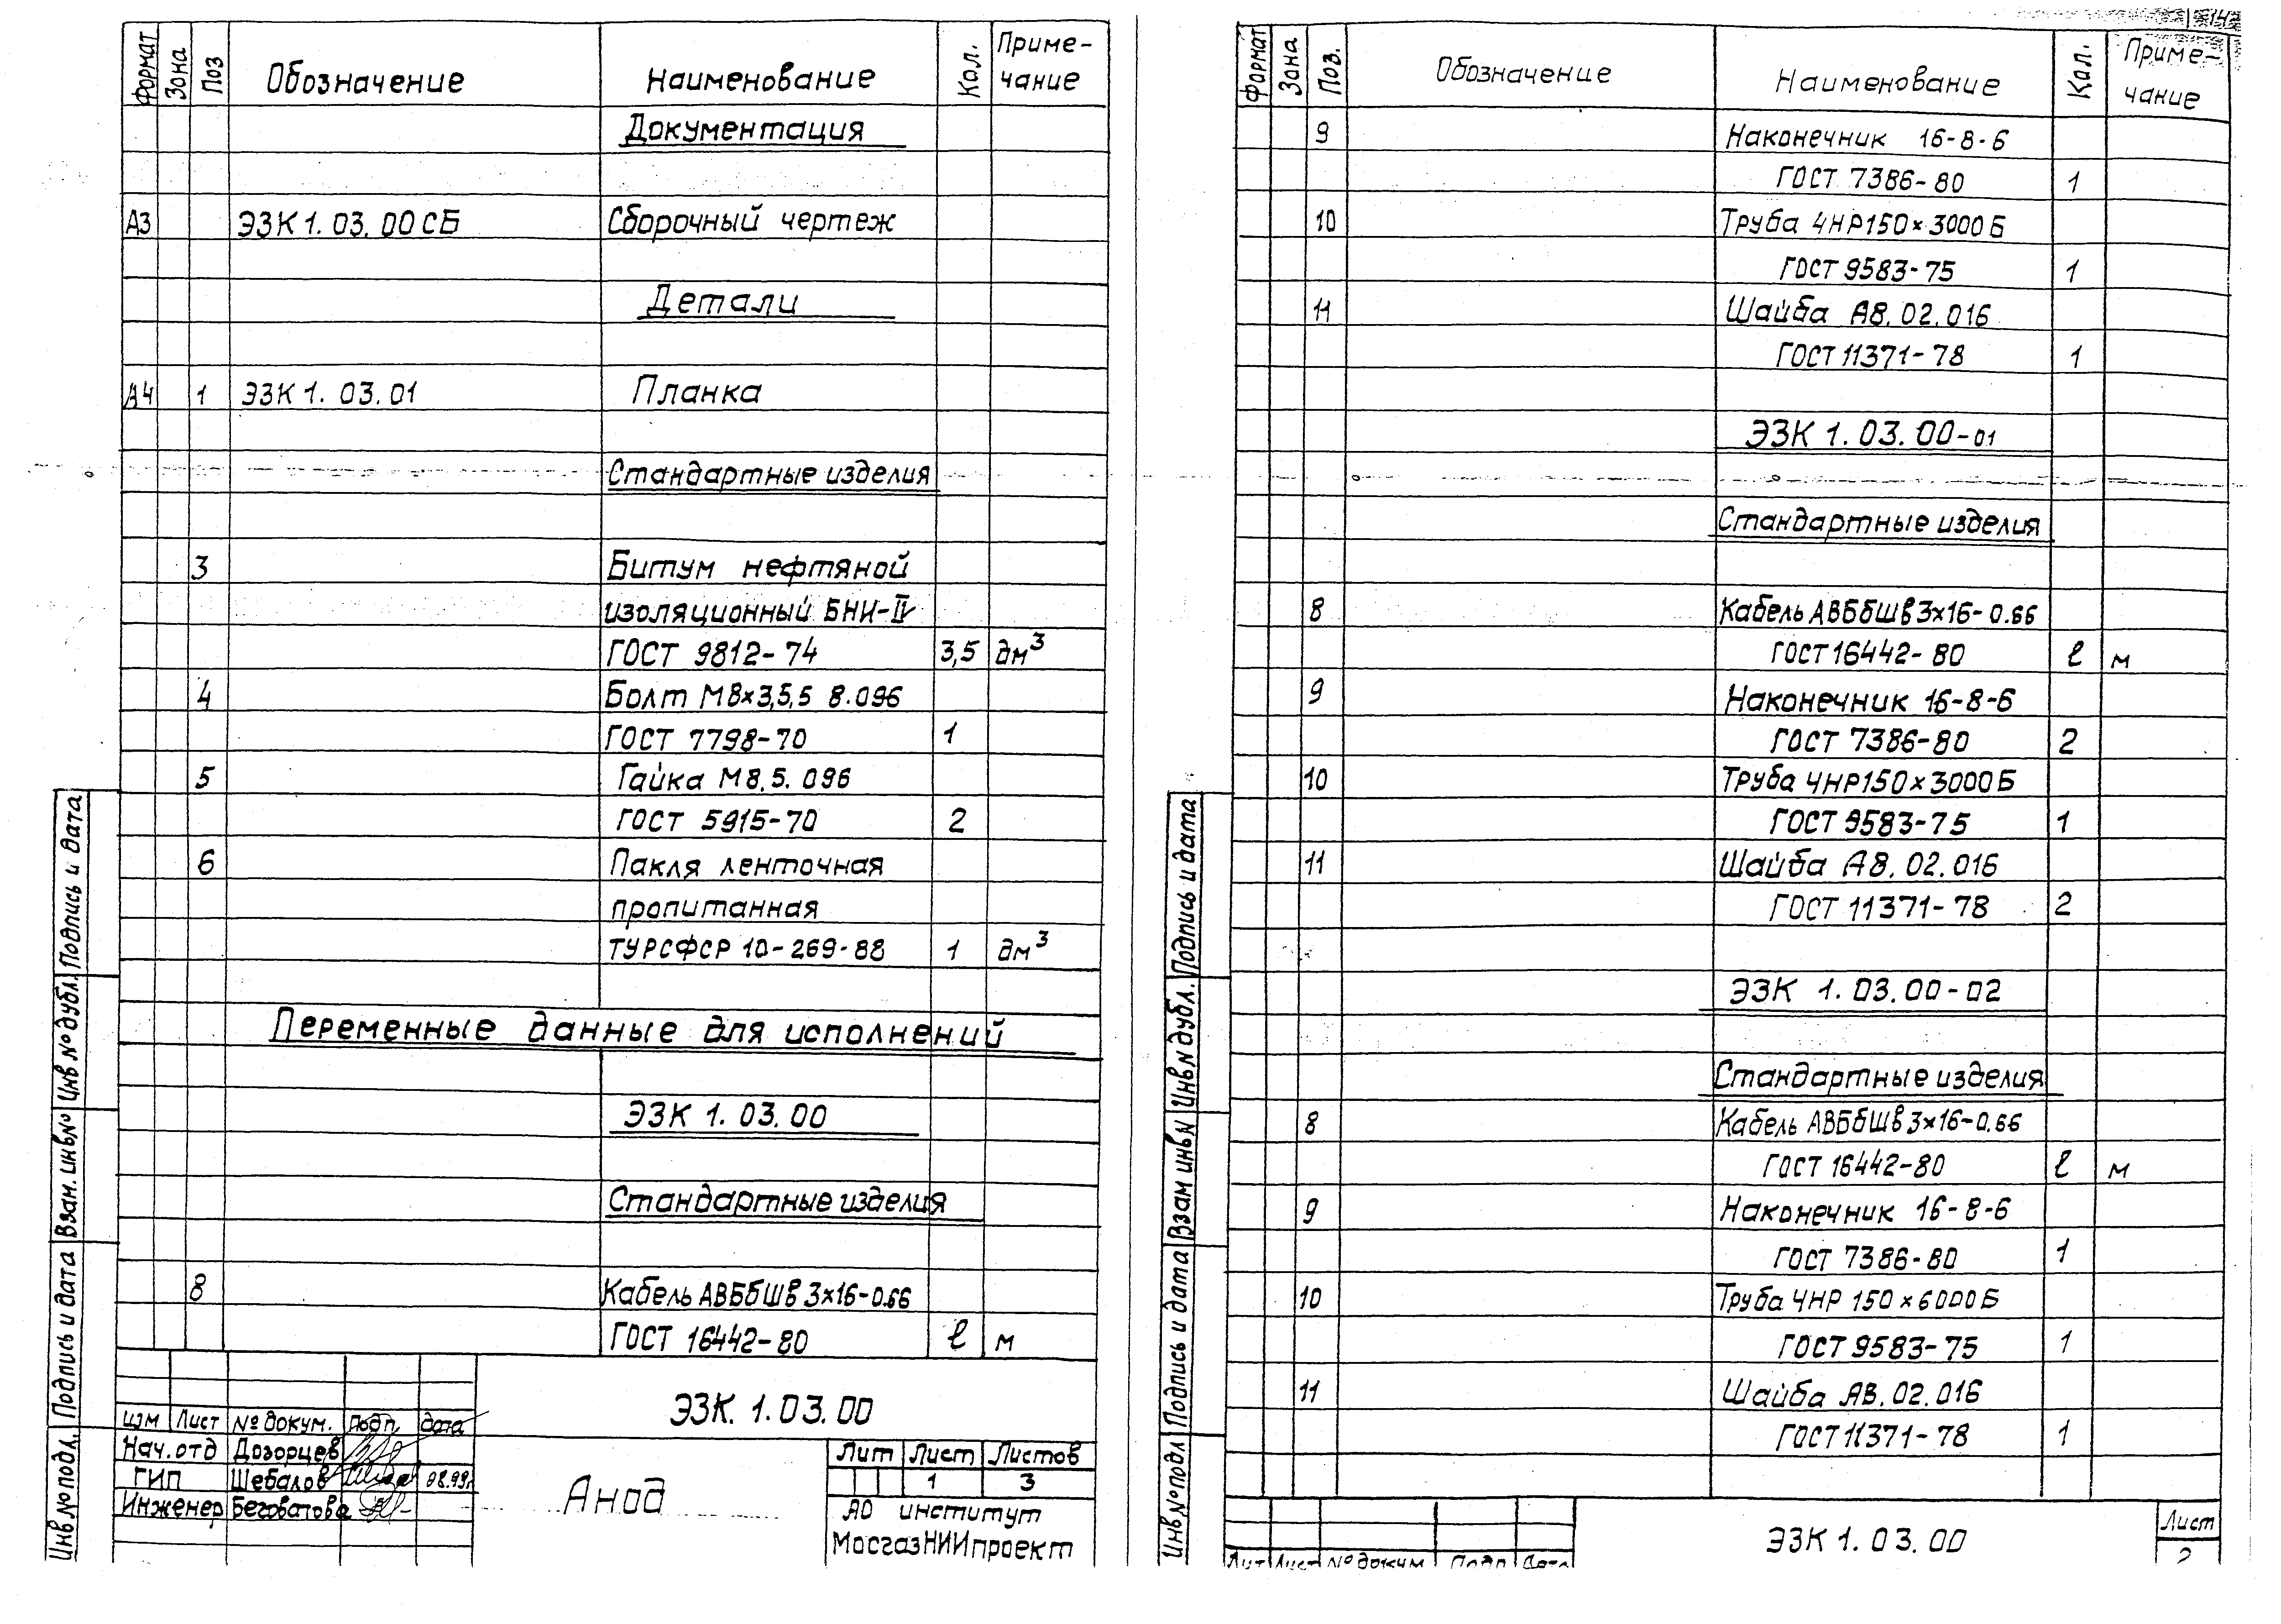 Формат Зона Поз Обозначение Наименование Кол. Приме-
чание
Документация
А3 ЭЗК 1. 03. 00 СБ Сборочный чертеж
Детали
А4 1 ЭЗК 1. 03. 01 Планка
Стандартные изделия
3 Битум нефтяной
изоляционный БНИ-IV
ГОСТ 9812-74 3,5 дм³
4 Болт М8×3,5,5 8.096
ГОСТ 7798-70 1
5 Гайка М8.5. 096
ГОСТ 5915-70 2
6 Пакля ленточная
пропитанная
ТУРСФСР 10-269-88 1 дм³
Переменные данные для исполнений
ЭЗК 1. 03. 00
Стандартные изделия
8 Кабель АВБбШв 3×16-0.66
ГОСТ 16442-80 ℓ м
Инв № подл. Подпись и дата Взам. инв № Инв № дубл. Подпись и дата
ЭЗК. 1. 03. 00
изм Лист № докум. Подп. дата
Нач. отд Дозорцев
ГИП Шебалов
Инженер Беговатова
Анод
Лит Лист Листов
1 3
АО институт
МосгазНИИпроект
14
Формат Зона Поз. Обозначение Наименование Кол. Приме-
чание
9 Наконечник 16-8-6
ГОСТ 7386-80 1
10 Труба ЧНР150×3000Б
ГОСТ 9583-75 1
11 Шайба А8. 02. 016
ГОСТ 11371-78 1
ЭЗК 1. 03. 00-01
Стандартные изделия
8 Кабель АВБбШв 3×16-0.66
ГОСТ 16442-80 ℓ м
9 Наконечник 16-8-6
ГОСТ 7386-80 2
10 Труба ЧНР150×3000Б
ГОСТ 9583-75 1
11 Шайба А8. 02. 016
ГОСТ 11371-78 2
ЭЗК 1. 03. 00-02
Стандартные изделия
8 Кабель АВБбШв 3×16-0.66
ГОСТ 16442-80 ℓ м
9 Наконечник 16-8-6
ГОСТ 7386-80 1
10 Труба ЧНР 150×6000Б
ГОСТ 9583-75 1
11 Шайба АВ. 02. 016
ГОСТ 11371-78 1
Инв № подл Подпись и дата Взам инв N Инв N дубл. Подпись и дата
ЭЗК 1. 03. 00
Лит Лист № докум Подп Дата
Лист
2